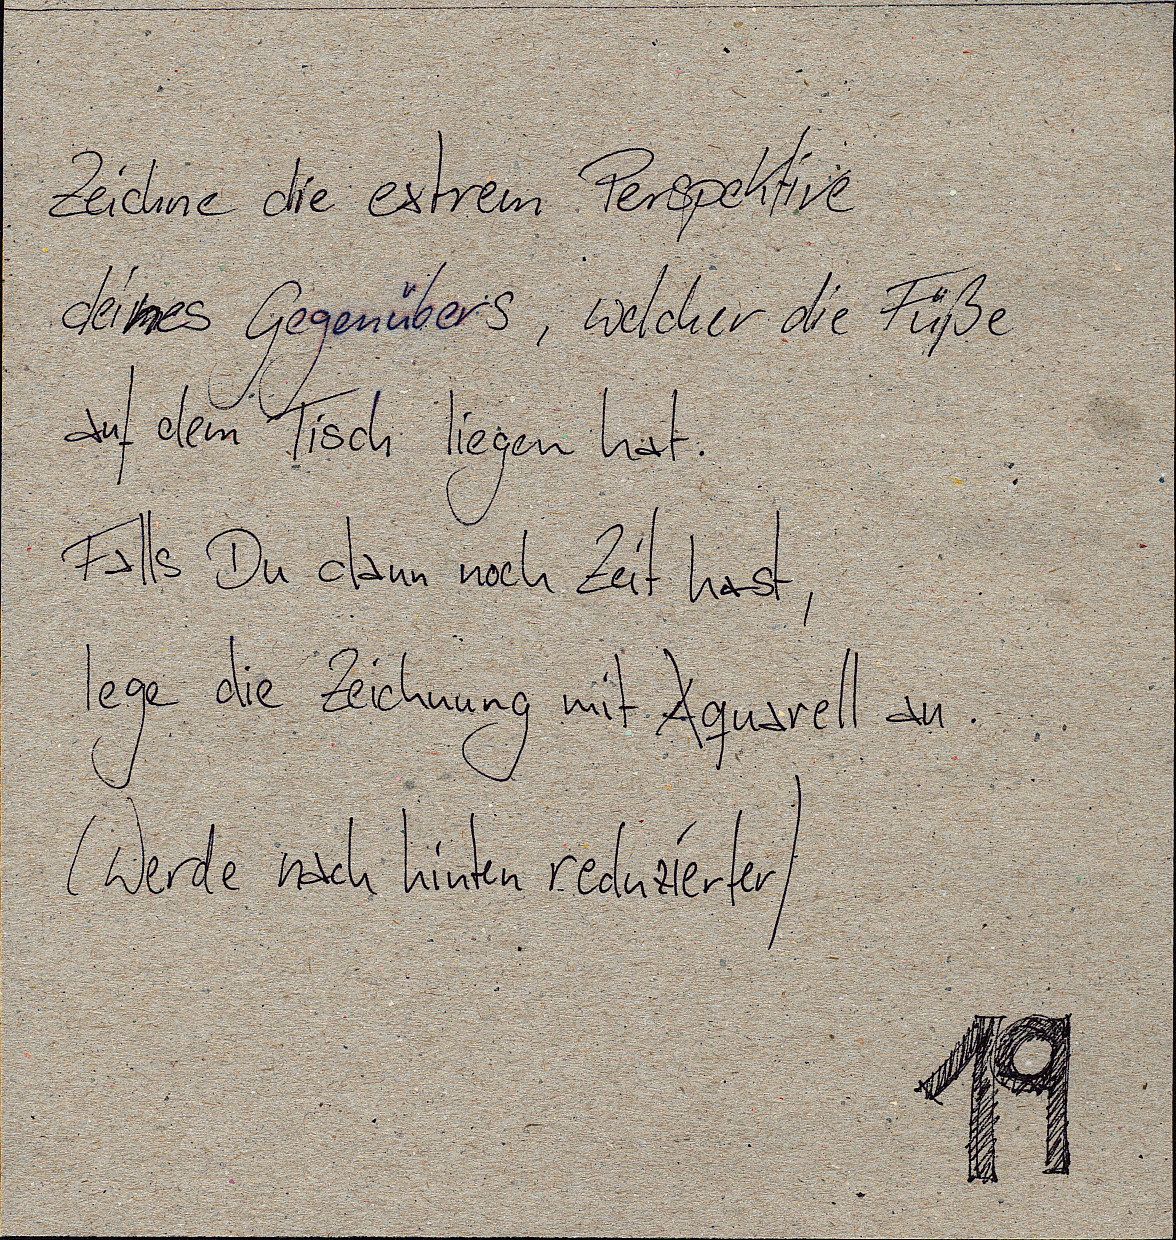 Zeichne die extrem Perspektive
deines Gegenübers, welcher die Füße
auf dem Tisch liegen hat.
Falls Du dann noch Zeit hast,
lege die Zeichnung mit Aquarell an.
(Werde nach hinten reduzierter)
19